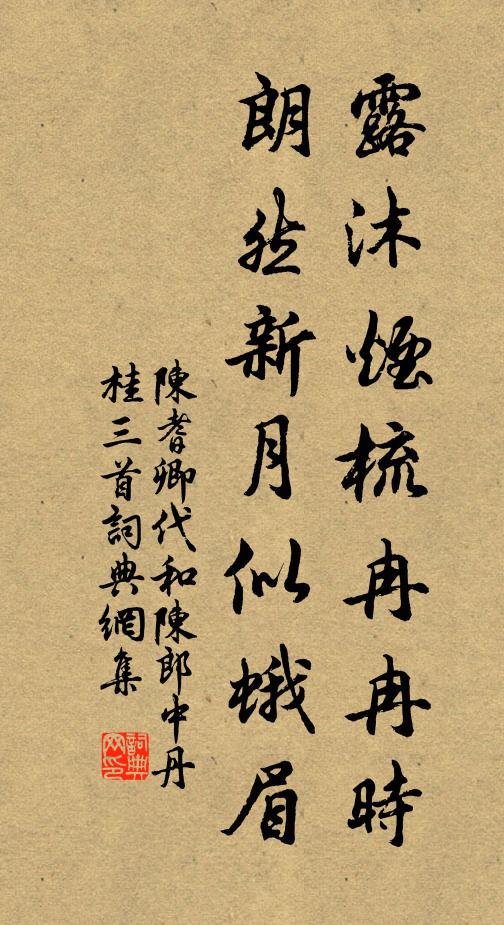 露沐煙梳冉冉時
朗然新月似蛾眉
陳耆卿代和陳郎中丹
桂三首詞典網集
詞典
网印